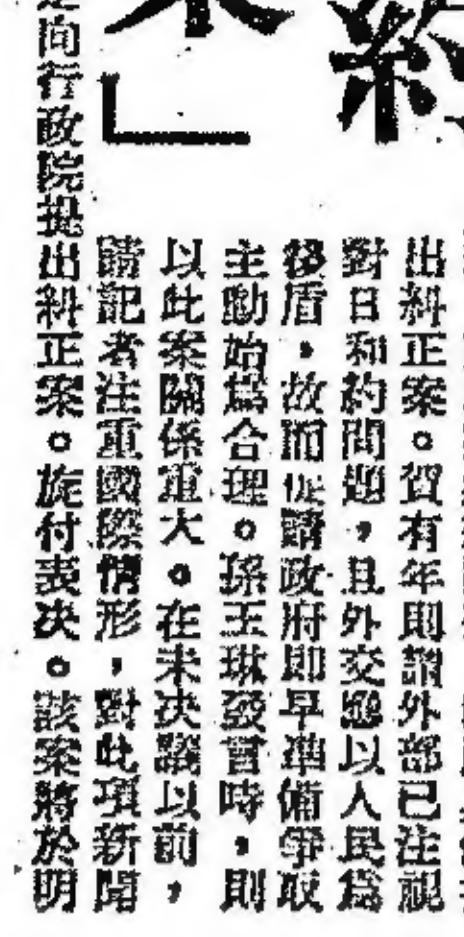 約
」
出糾正案。賀有年則謂外部已注視
對日和約問題，且外交應以人民爲
後盾，故而促請政府即早準備爭取
主動始爲合理。孫玉琳發言時，則
以此案關係重大。在未決議以前，
請記者注重國際情形，對此項新聞
向行政院提出糾正案。旋付表決。該案將於明